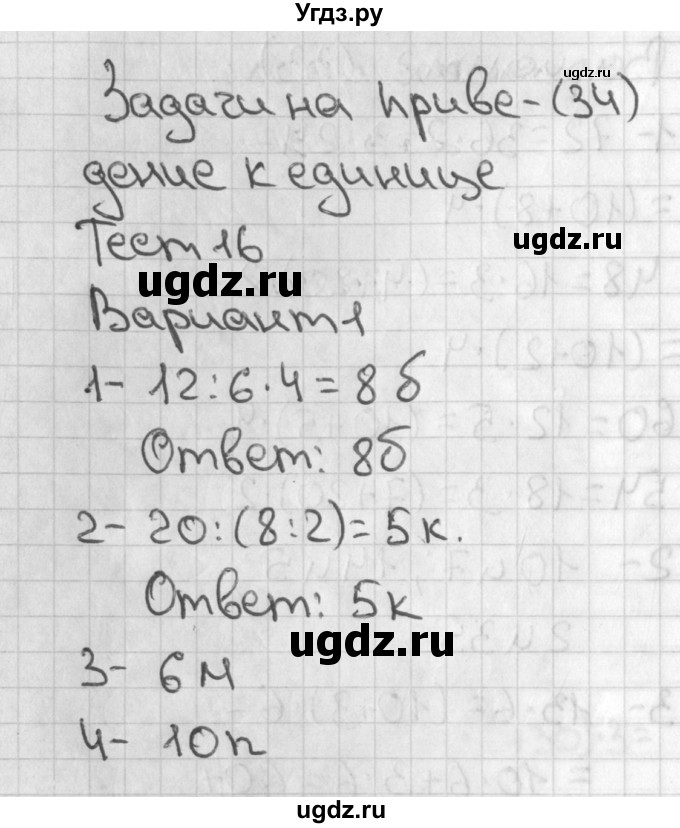 Угдз.ру
ugdz.ru
Задачи на приве- (34)
дение к единице
Тест 16
ugdz.ru
ugdz.ru
Вариант 1
1- 12:6·4=8 б
Ответ: 8б
2- 20:(8:2)=5к.
Ответ: 5к
ugdz.ru
3- 6м
4- 10п
ugdz.ru